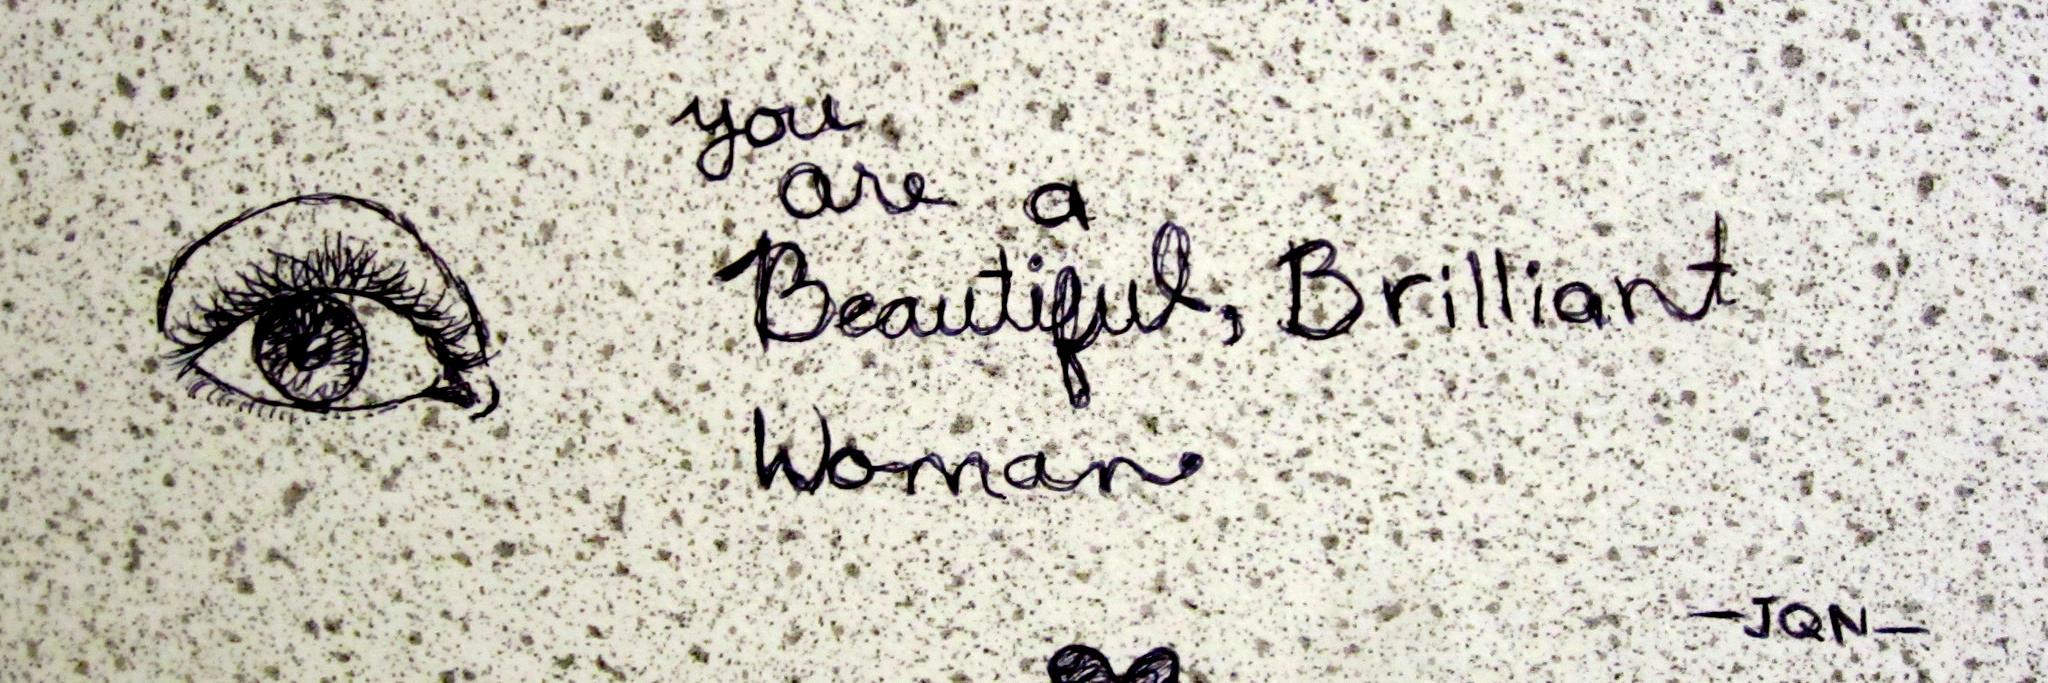 you
are a
Beautiful, Brilliant
Woman
—JQN—